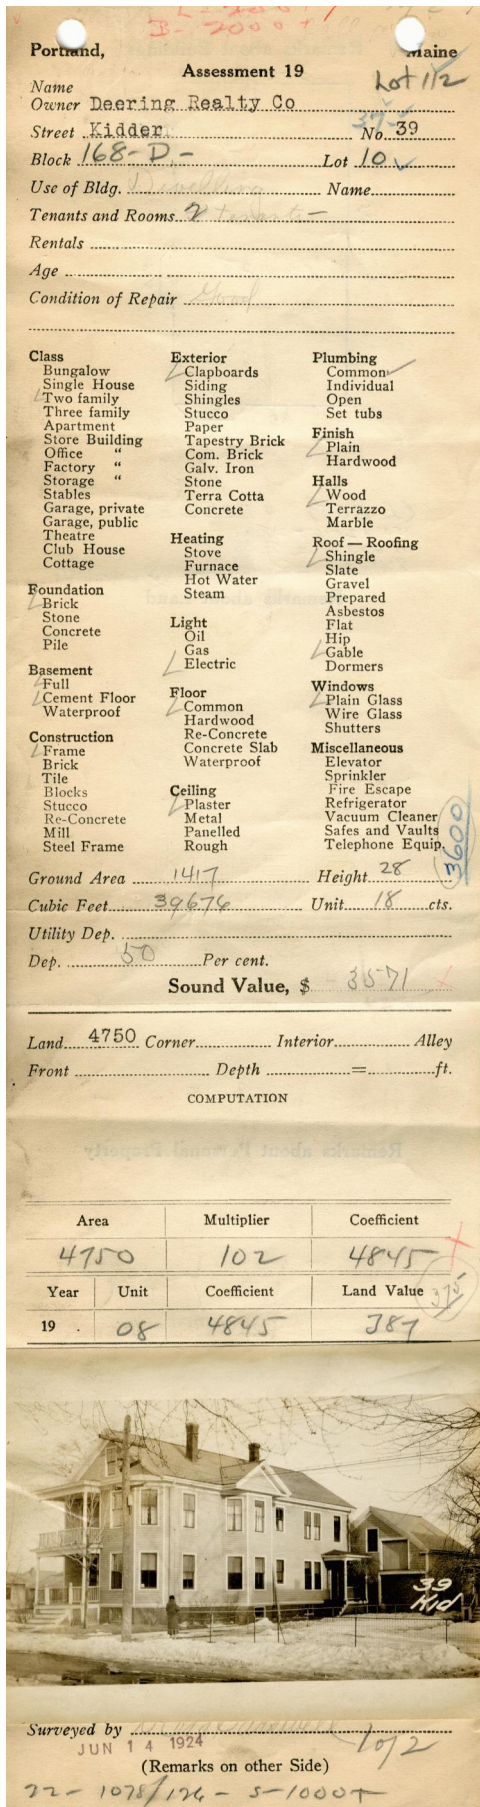 B- 2000 +
Portland, Maine
Assessment 19
Lot 1/2
Name
Owner Deering Realty Co
37-
Street Kidder No. 39
Block 168-D- Lot 10
Use of Bldg. Dwelling Name
Tenants and Rooms 2 tenants-
Rentals
Age
Condition of Repair Good
Class
Bungalow
Single House
Two family
Three family
Apartment
Store Building
Office "
Factory "
Storage "
Stables
Garage, private
Garage, public
Theatre
Club House
Cottage
Foundation
Brick
Stone
Concrete
Pile
Basement
Full
Cement Floor
Waterproof
Construction
Frame
Brick
Tile
Blocks
Stucco
Re-Concrete
Mill
Steel Frame
Exterior
Clapboards
Siding
Shingles
Stucco
Paper
Tapestry Brick
Com. Brick
Galv. Iron
Stone
Terra Cotta
Concrete
Heating
Stove
Furnace
Hot Water
Steam
Light
Oil
Gas
Electric
Floor
Common
Hardwood
Re-Concrete
Concrete Slab
Waterproof
Ceiling
Plaster
Metal
Panelled
Rough
Plumbing
Common
Individual
Open
Set tubs
Finish
Plain
Hardwood
Halls
Wood
Terrazzo
Marble
Roof — Roofing
Shingle
Slate
Gravel
Prepared
Asbestos
Flat
Hip
Gable
Dormers
Windows
Plain Glass
Wire Glass
Shutters
Miscellaneous
Elevator
Sprinkler
Fire Escape
Refrigerator
Vacuum Cleaner
Safes and Vaults
Telephone Equip.
3600
Ground Area 1417 Height 28
Cubic Feet 39676 Unit 18 cts.
Utility Dep.
Dep. 50 Per cent.
Sound Value, $ 3571
Land 4750 Corner Interior Alley
Front Depth = ft.
COMPUTATION
Area Multiplier Coefficient
4750 102 4845
Year Unit Coefficient Land Value 375
19 . 08 4845 387
39
Kid
Surveyed by
JUN 14 1924
1 of 2
(Remarks on other Side)
22- 1078/126 - S-1000+